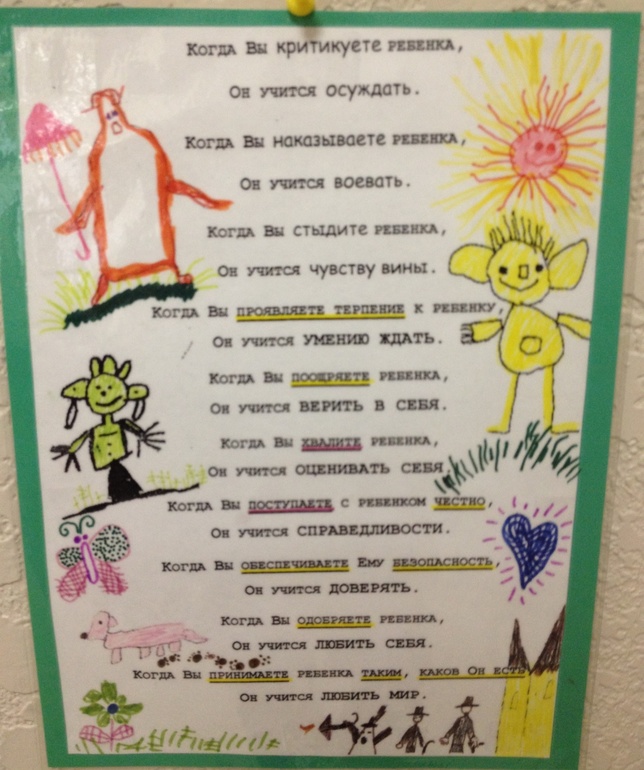 Когда Вы критикуете РЕБЕНКА,
Он учится осуждать.
Когда Вы наказываете РЕБЕНКА,
Он учится воевать.
Когда Вы стыдите РЕБЕНКА,
Он учится чувству вины.
Когда Вы ПРОЯВЛЯЕТЕ ТЕРПЕНИЕ К РЕБЕНКУ,
Он учится УМЕНИЮ ЖДАТЬ.
Когда Вы ПООЩРЯЕТЕ РЕБЕНКА,
Он учится ВЕРИТЬ В СЕБЯ.
Когда Вы ХВАЛИТЕ РЕБЕНКА,
Он учится ОЦЕНИВАТЬ СЕБЯ.
Когда Вы ПОСТУПАЕТЕ С РЕБЕНКОМ ЧЕСТНО,
Он учится СПРАВЕДЛИВОСТИ.
Когда Вы ОБЕСПЕЧИВАЕТЕ Ему БЕЗОПАСНОСТЬ,
Он учится ДОВЕРЯТЬ.
Когда Вы ОДОБРЯЕТЕ РЕБЕНКА,
Он учится ЛЮБИТЬ СЕБЯ.
Когда Вы ПРИНИМАЕТЕ РЕБЕНКА ТАКИМ, КАКОВ Он ЕСТЬ
Он учится ЛЮБИТЬ МИР.